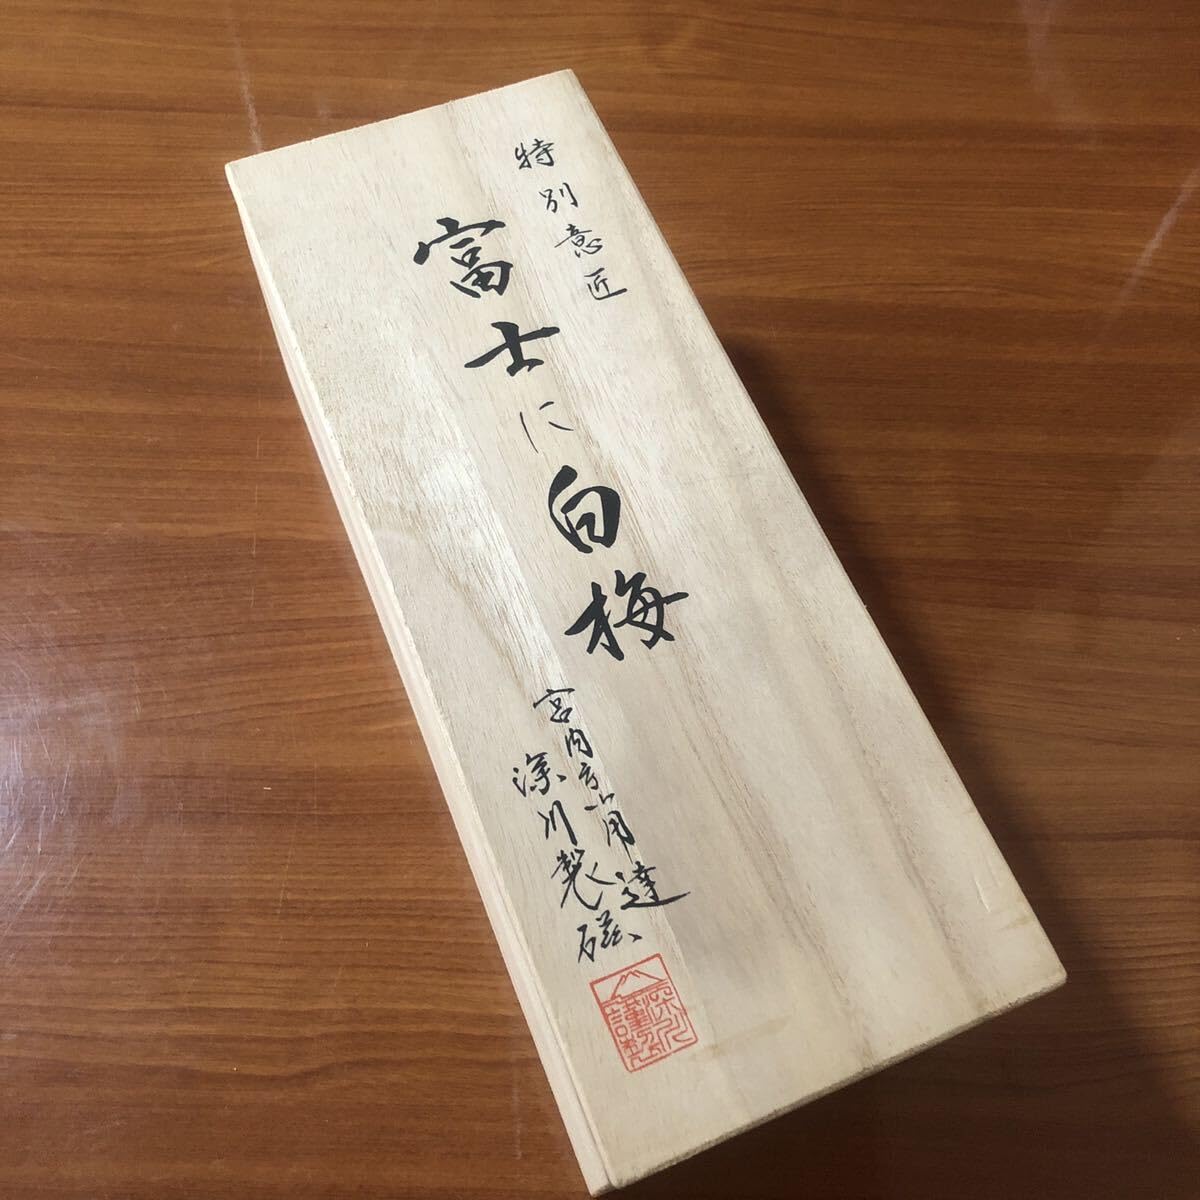 特別意匠
富士に白梅
宮内庁御用達
深川製磁
深川謹製